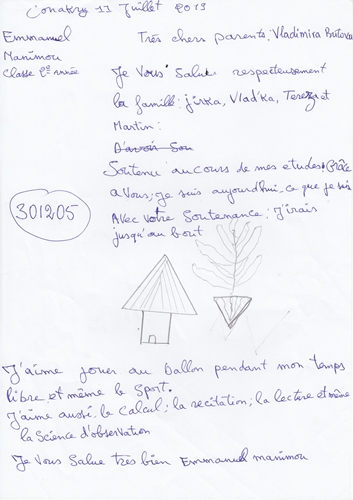 Conakry 11 Juillet 2013
Emmanuel
Manimou
Classe 6e année
Très chers parents: Vladimira Britova
Je Vous Salue respectueusement
la famille: jirka, Vlad'ka, Tereza et
Martin:
D'avoir Sou
Soutenu au cours de mes etudes. Grâce
a Vous; je suis aujourd'hui ce que je suis
Avec Votre Soutenance; J'irais
jusqu'au bout
301205
J'aime jouer au Ballon pendant mon temps
libre et même le Sport.
J'aime aussi le Calcul; la recitation; la lecture et même
la Science d'observation
Je Vous Salue très bien Emmanuel manimou